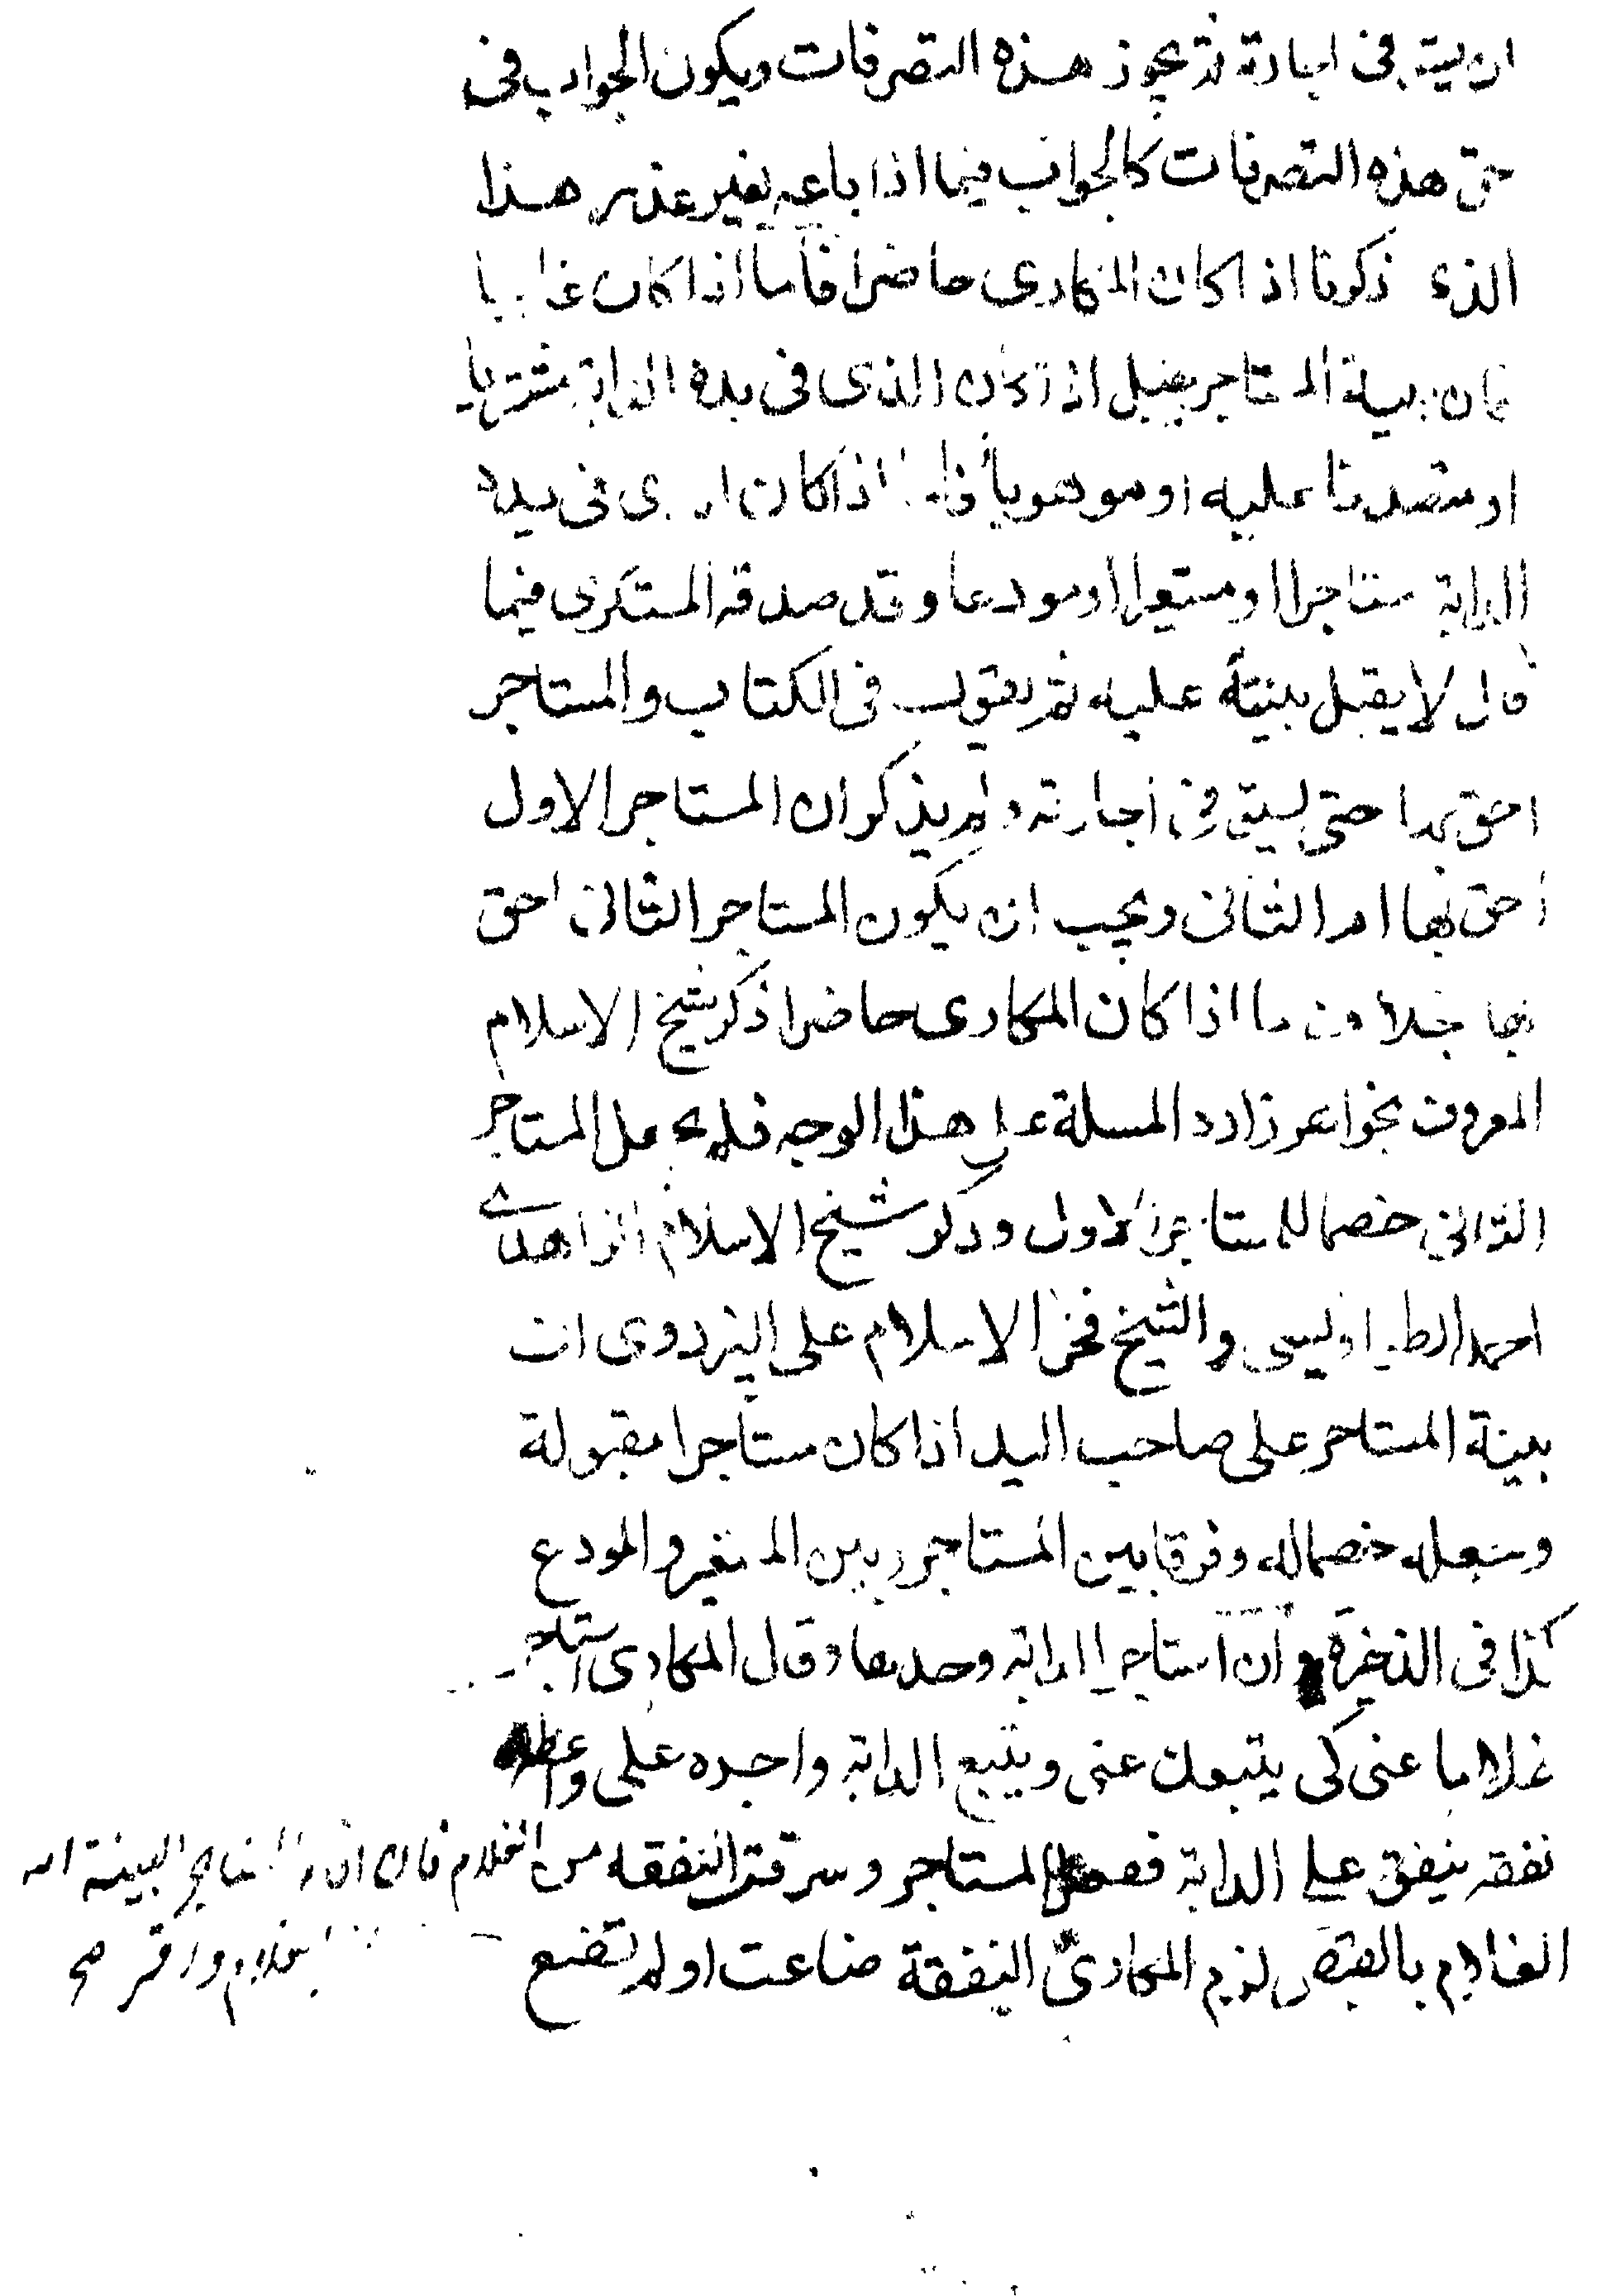 ان يستبقى اجارته ثم يجوز هذه التصرفات ويكون الجواب فى
حق هذه التصرفات كالجواب فيما اذا باعه بغير عذر هذا
الذى ذكرنا اذا كان المكارى حاضرا فأما اذا كان غايبا
فان بينة المستاجر يقبل اذا كان الذى فى يده الدابة مشتريا
او متصدقا عليه او موهوبا فاما اذا كان الذى فى يده
الدابة مستاجرا او مستعيرا او مودعا وقد صدقه المستكرى فيما
قال لا يقبل بينته عليه ثم يقول فى الكتاب والمستاجر
احق بها حتى يستوفى اجارته ولم يذكر ان المستاجر الاول
احق بها ام الثانى ويجب ان يكون المستاجر الثانى احق
بها بخلاف ما اذا كان المكارى حاضرا ذكر شيخ الاسلام
المعروف بخواهر زاده المسلة على هذا الوجه فلم يجعل المستاجر
الثانى خصما للمستاجر الاول وذكر شيخ الاسلام الزاهد
احمد الطواويسى والشيخ فخر الاسلام على البزدوى ان
بينة المستاجر على صاحب اليد اذا كان مستاجرا مقبولة
وتجعله خصما له وفرقا بين المستاجر وبين المستعير والمودع
كذا فى الذخيرة وان استاجر الدابة وحدها وقال المكارى استاجر
غلاما عنى كى يتبعك عنى ويتبع الدابة واجره على واعطه
نفقه ينفق على الدابة ففعل المستاجر وسرقت النفقه من الغلام فان اقام المستاجر البينة انه
الغلام بالقبض لزم المكارى النفقة ضاعت او لم تضع
الغلام واقر صح